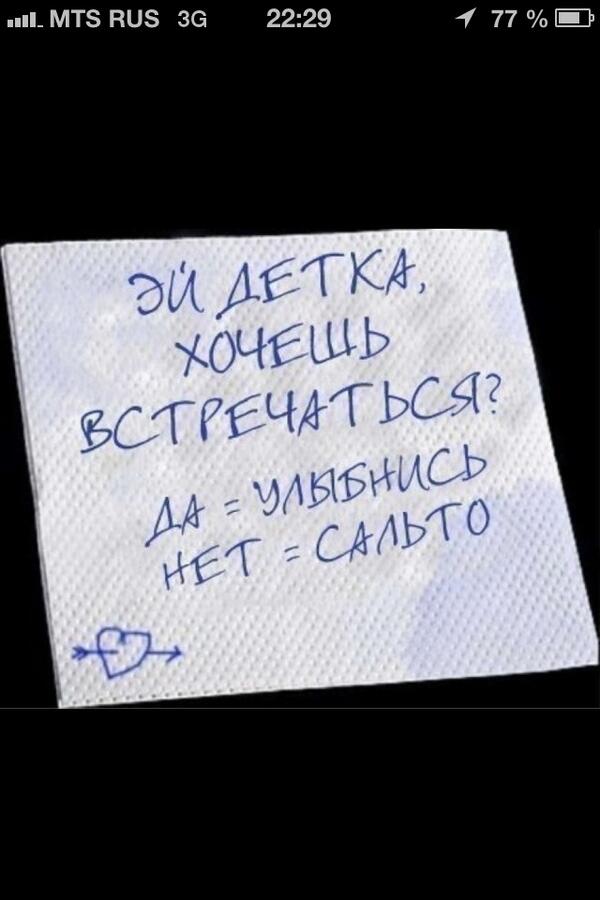 MTS RUS 3G 22:29 77 %
ЭЙ ДЕТКА,
ХОЧЕШЬ
ВСТРЕЧАТЬСЯ?
ДА = УЛЫБНИСЬ
НЕТ = САЛЬТО